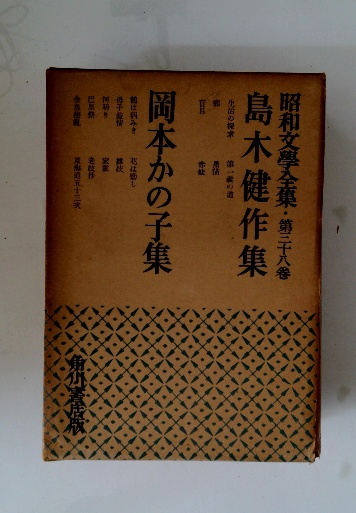 昭和文學全集・第三十八巻
島木健作集
生活の探求
第一義の道
癩
黒猫
盲目
赤蛙
岡本かの子集
鶴は病みき
花は勁し
母子叙情
雛妓
河明り
家霊
巴里祭
老妓抄
金魚撩亂
東海道五十三次
角川書店版